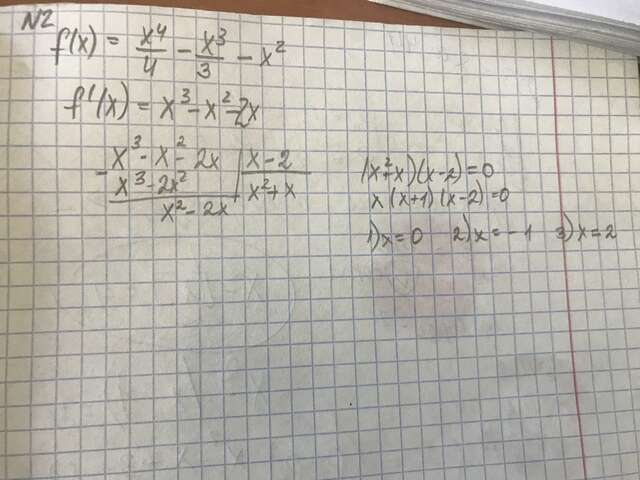 N2
f(x) = x⁴/4 - x³/3 - x²
f'(x) = x³ - x² - 2x
- x³ - x² - 2x | x - 2
x³ - 2x² | x² + x
x² - 2x
(x² + x)(x - 2) = 0
x(x + 1)(x - 2) = 0
1) x = 0 2) x = -1 3) x = 2